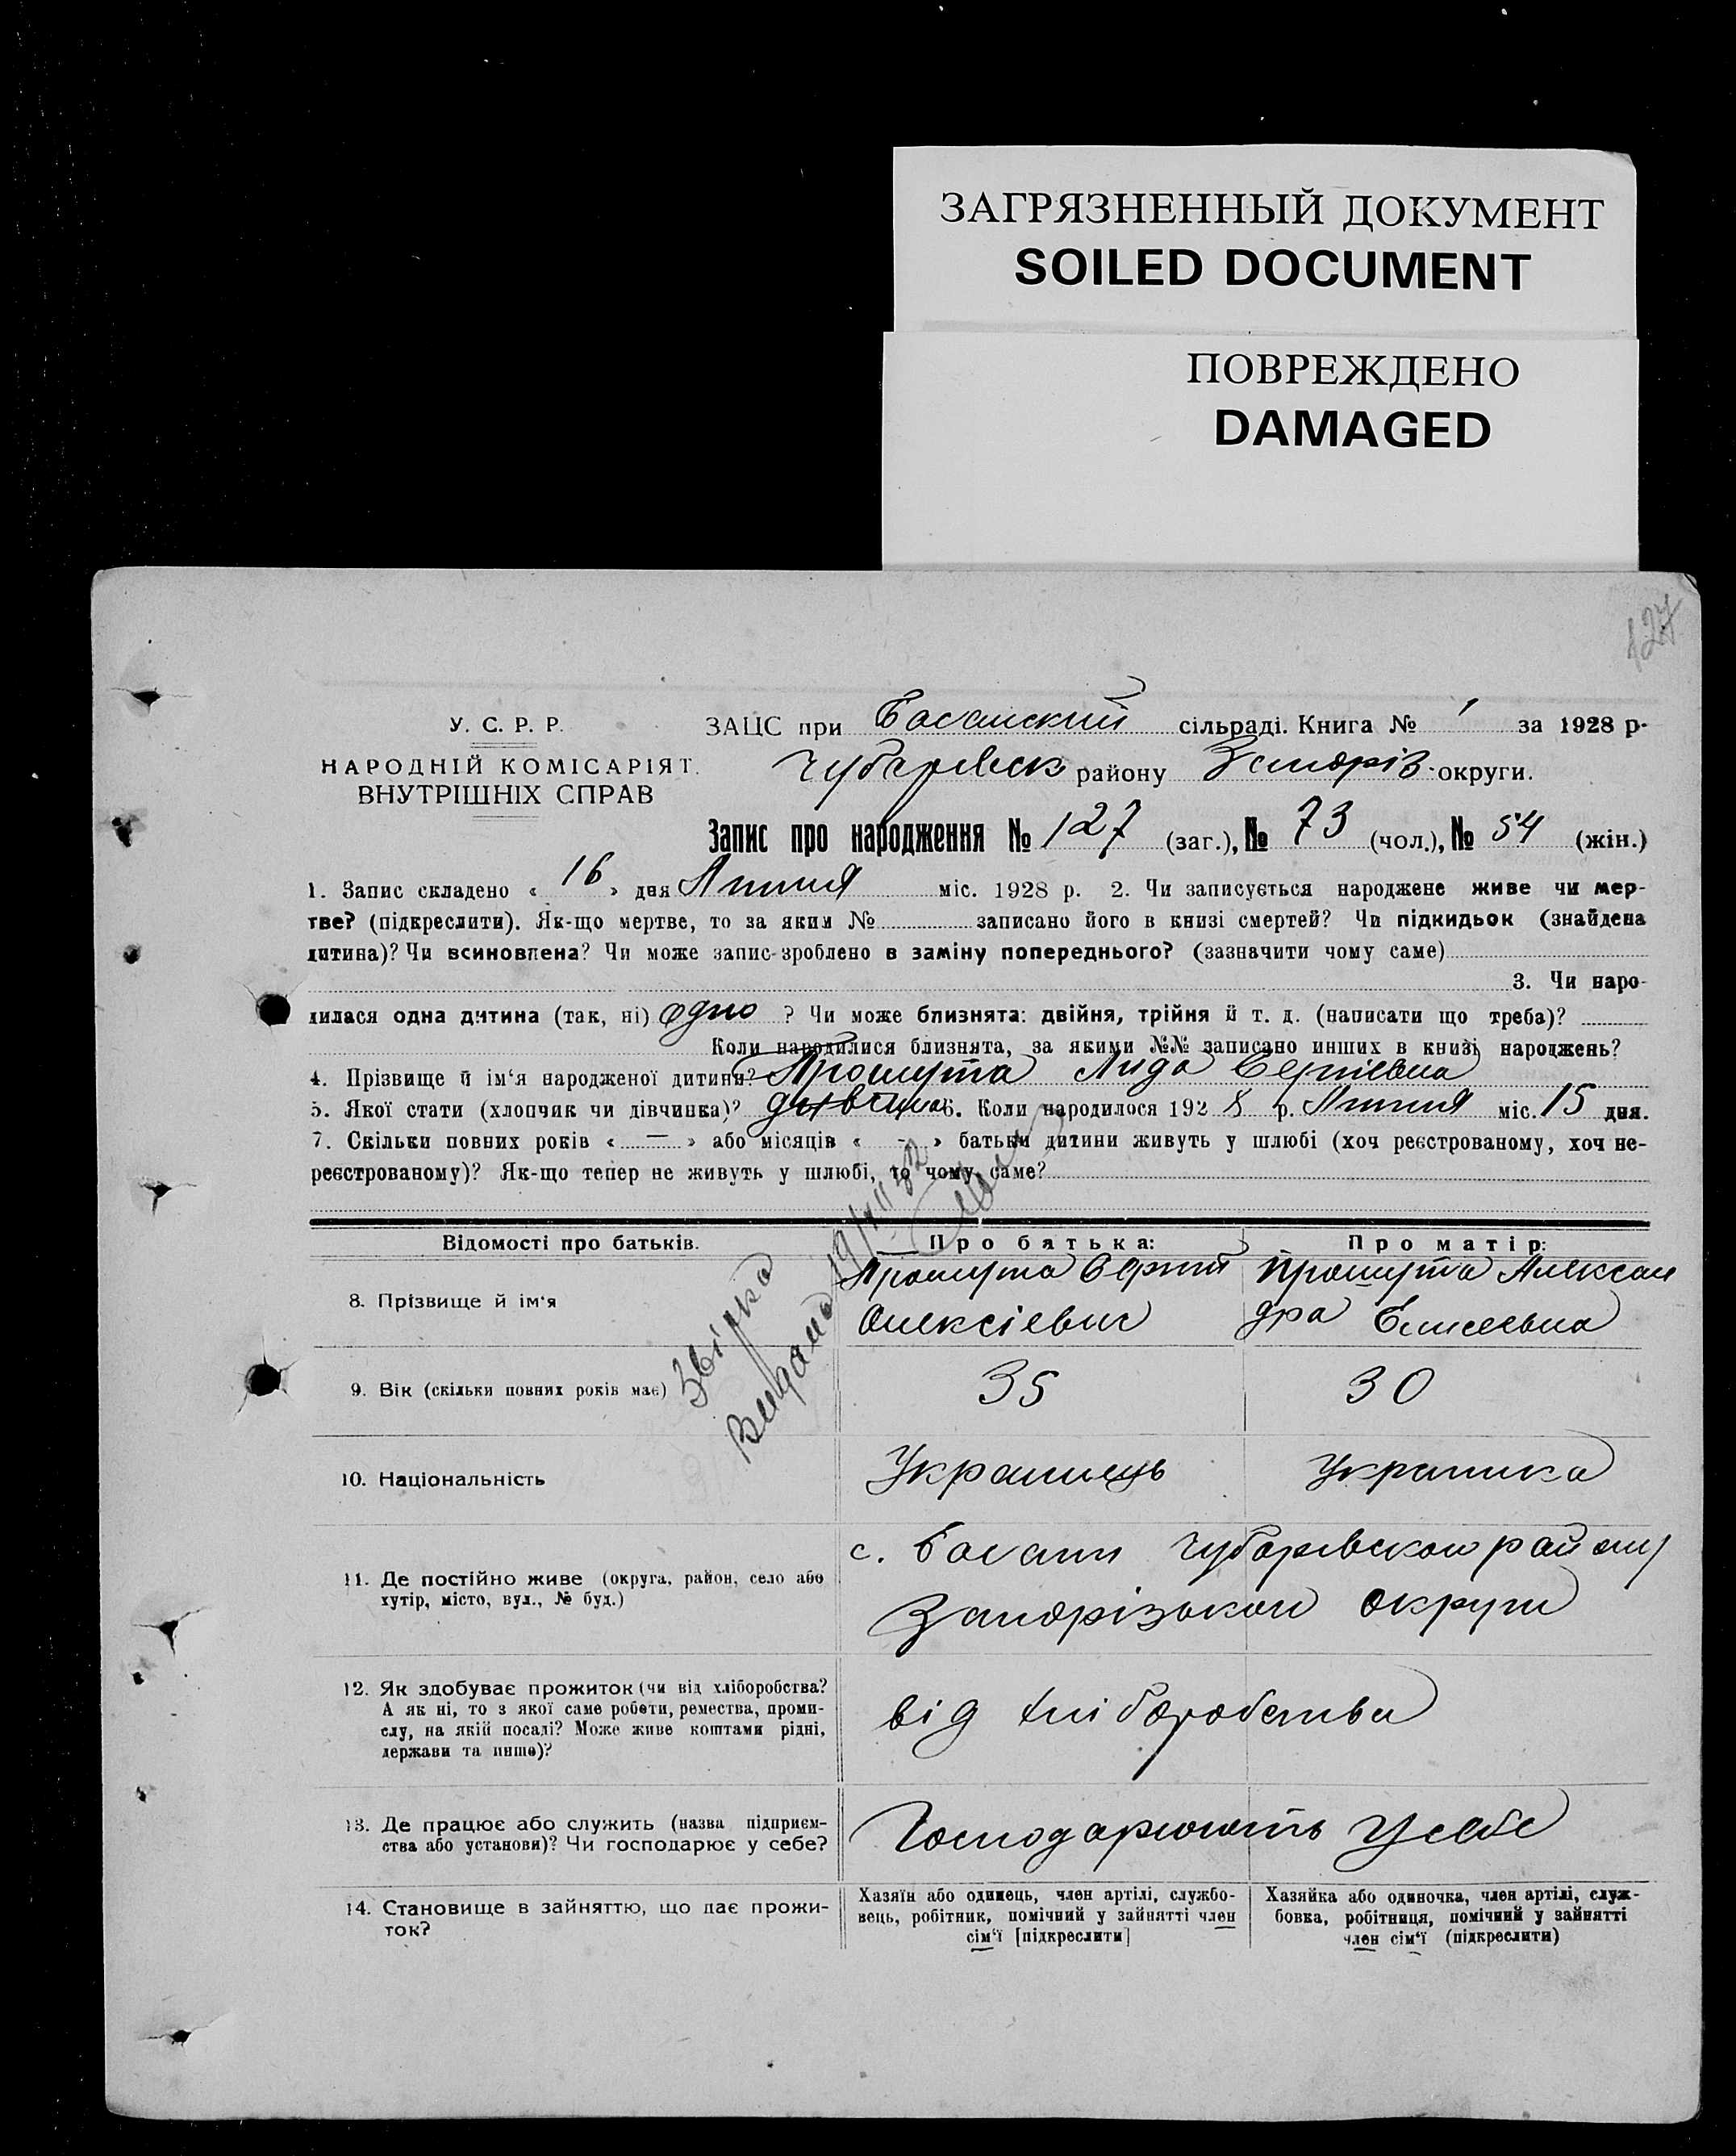 ЗАГРЯЗНЕННЫЙ ДОКУМЕНТ
SOILED DOCUMENT
ПОВРЕЖДЕНО
DAMAGED
127
У. С. Р. Р.
НАРОДНІЙ КОМІСАРІЯТ
ВНУТРІШНІХ СПРАВ
ЗАЦС при Басанский сільраді. Книга № 1 за 1928 р.
Чубарівськ району Запоріз округи.
Запис про народження № 127 (заг.), № 73 (чол.), № 54 (жін.)
1. Запис складено « 16 » дня Липня міс. 1928 р. 2. Чи записується народжене живе чи мер-
тве? (підкреслити). Як-що мертве, то за яким № записано його в книзі смертей? Чи підкидьок (знайдена
дитина)? Чи всиновлена? Чи може запис зроблено в заміну попереднього? (зазначити чому саме)
3. Чи наро-
дилася одна дитина (так, ні) одно ? Чи може близнята: двійня, трійня й т. д. (написати що треба)?
Коли народилися близнята, за якими №№ записано инших в книзі народжень?
4. Прізвище й ім'я народженої дитини? Прошута Лида Сергіевна
5. Якої стати (хлопчик чи дівчинка)? дівчинка 6. Коли народилося 1928 р. Липня міс. 15 дня.
7. Скільки повних років « — » або місяців « - » батьки дитини живуть у шлюбі (хоч реєстрованому, хоч не-
реєстрованому)? Як-що тепер не живуть у шлюбі, то чому саме?
Звірка
Видано
Відомості про батьків.
Про батька:
Про матір:
8. Прізвище й ім'я
Прошута Сергій
Олексіевич
Прошута Алексан
дра Елисеевна
9. Вік (скільки повних років має)
35
30
10. Національність
Украинець
Украинка
11. Де постійно живе (округа, район, село або
хутір, місто, вул., № буд.)
с. Басань Чубарівскои району
Запорізькои округи
12. Як здобуває прожиток (чи від хліборобства?
А як ні, то з якої саме роботи, ремества, проми-
слу, на якій посаді? Може живе коштами рідні,
держави та инше)?
від хліборобства
13. Де працює або служить (назва підприєм-
ства або установи)? Чи господарює у себе?
Господарюють у себе
14. Становище в зайняттю, що дає прожи-
ток?
Хазяїн або одинець, член артілі, службо-
вець, робітник, помічний у зайнятті член
сім'ї [підкреслити]
Хазяйка або одиночка, член артілі, служ-
бовка, робітниця, помічний у зайнятті
член сім'ї (підкреслити)